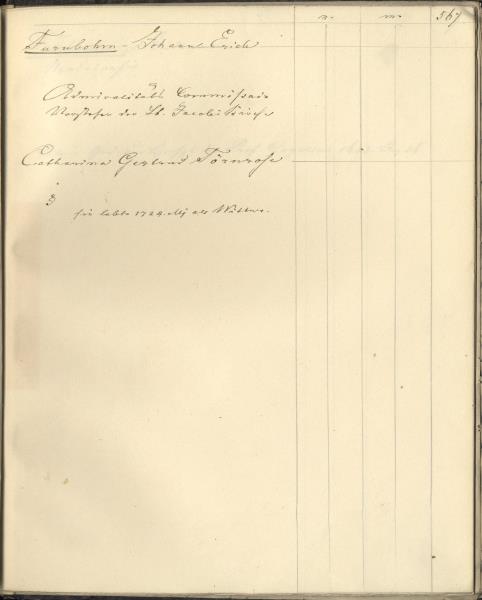 v. m. 567
Furubohm - Johann Erich
Admiralitäts Commissair
Vorsteher der St. Jacobi Kirche
Catharina Gertrud Törnrose
sie lebte 1724 als Wittwe.